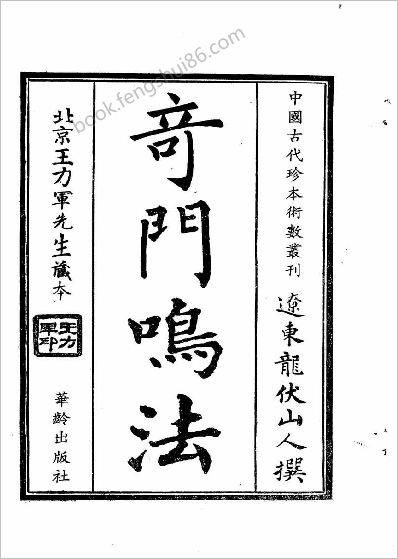 中國古代珍本術數叢刊
遼東龍伏山人撰
奇門鳴法
北京王力軍先生藏本
王力軍印
華齡出版社
book.fengshui86.com